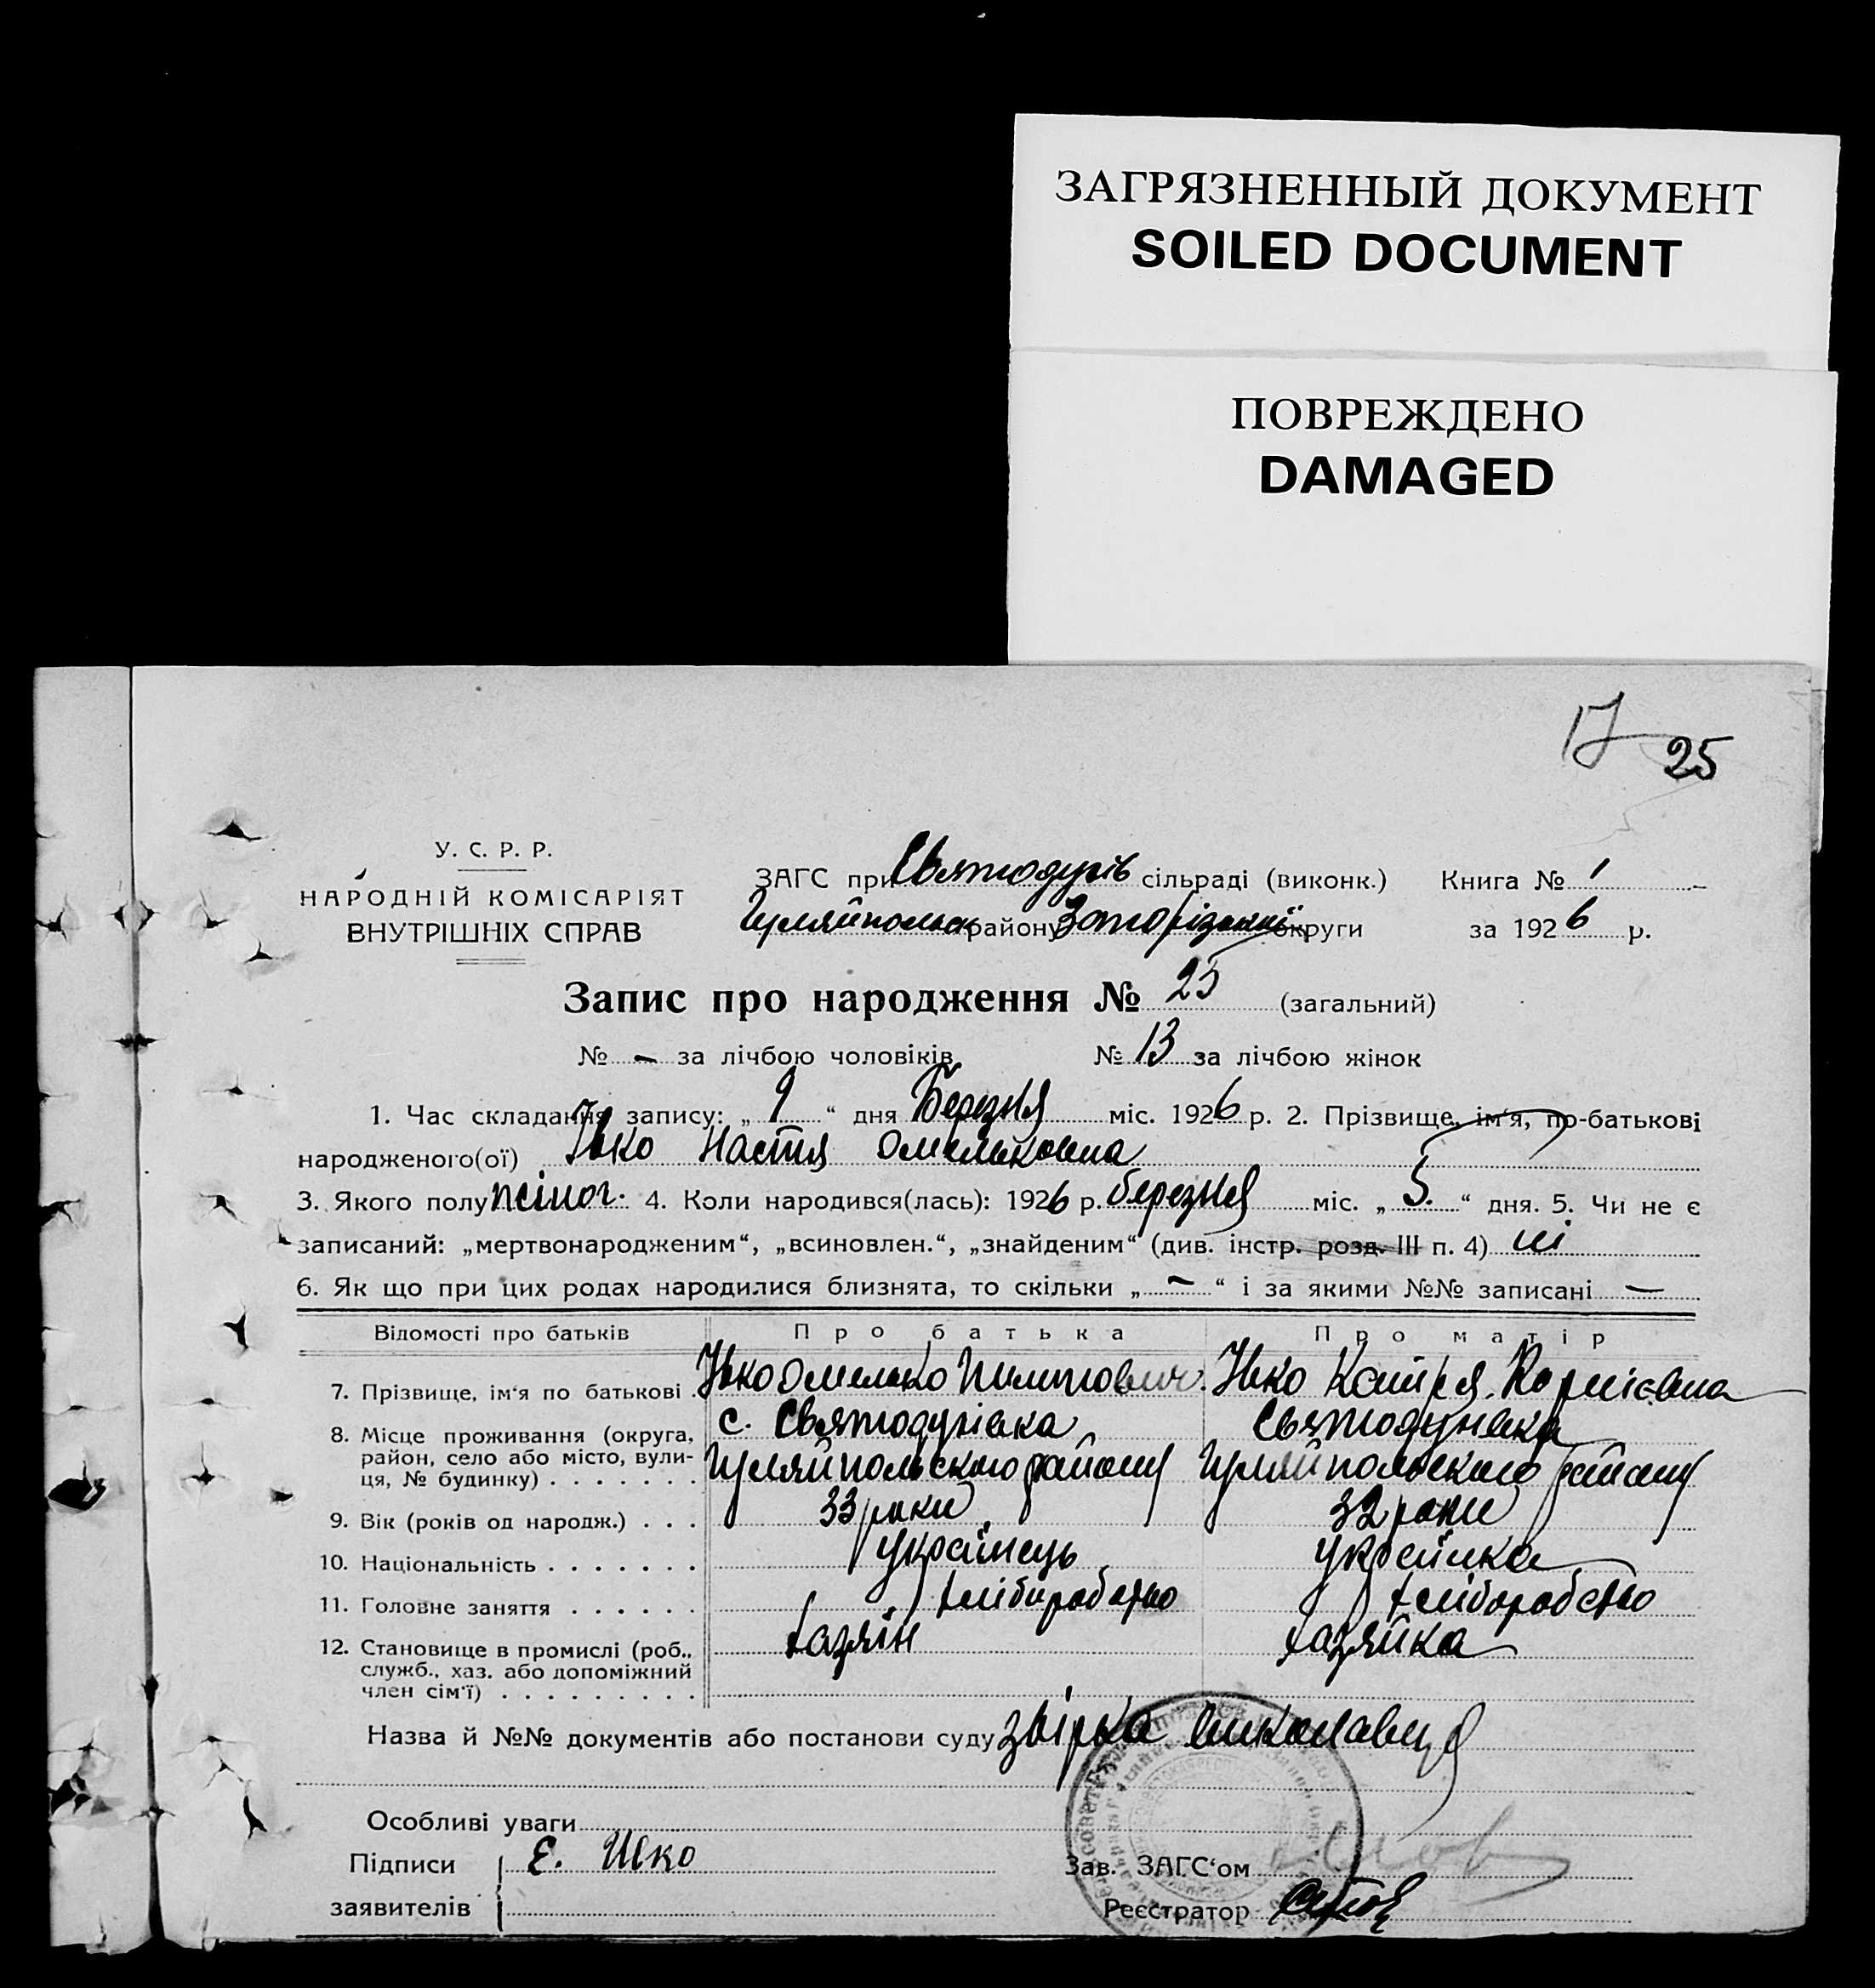 ЗАГРЯЗНЕННЫЙ ДОКУМЕНТ
SOILED DOCUMENT
ПОВРЕЖДЕНО
DAMAGED
17 25
У. С. Р. Р.
НАРОДНІЙ КОМІСАРІЯТ
ВНУТРІШНІХ СПРАВ
ЗАГС при Святодухів сільраді (виконк.) Книга № 1
Гуляйпольск району Запорізької округи за 1926 р.
Запис про народження № 25 (загальний)
№ — за лічбою чоловіків № 13 за лічбою жінок
1. Час складання запису: „ 9 “ дня Березня міс. 1926 р. 2. Прізвище, ім'я, по-батькові
народженого(ої) Івко Настя Омельковна
3. Якого полу жіноч. 4. Коли народився(лась): 1926 р. березня міс. „ 5. “ дня. 5. Чи не є
записаний: „мертвонародженим“, „всиновлен.“, „знайденим“ (див. інстр. розд. III п. 4) ні
6. Як що при цих родах народилися близнята, то скільки „ — “ і за якими №№ записані —
Відомості про батьків Про батька Про матір
7. Прізвище, ім'я по батькові Івко Омелько Пилипович. Івко Катря Корніевна
8. Місце проживання (округа, район, село або місто, вули-ця, № будинку) . . . . . . . с. Святодухівка Гуляйпольского району Святодухівка Гуляйпольского району
9. Вік (років од народж.) . . . 33 роки 32 роки
10. Національність . . . . . . . українець українка
11. Головне заняття . . . . . . хліборобство хліборобство
12. Становище в промислі (роб., служб., хаз. або допоміжний член сім'ї) . . . . . . . . . хазяін хазяйка
Назва й №№ документів або постанови суду звірка виконавця
Особливі уваги
Підписи Е. Ивко
заявителів
Зав. ЗАГС'ом
Реєстратор